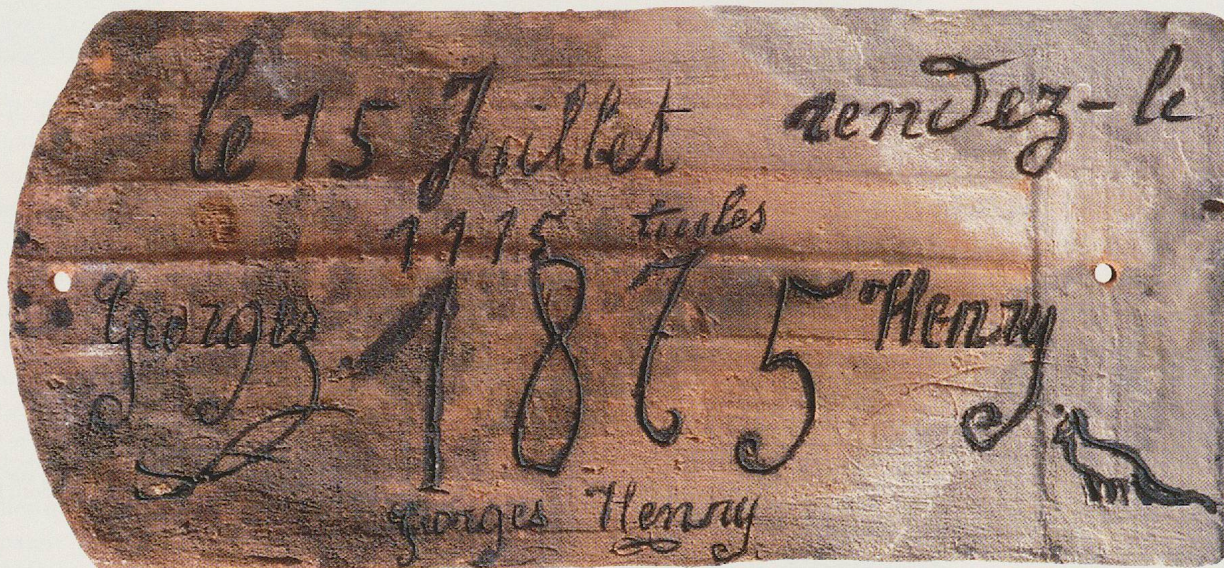 le 15 Juillet rendez-le
1115 tuiles
Georges 1875 Henry
Georges Henry